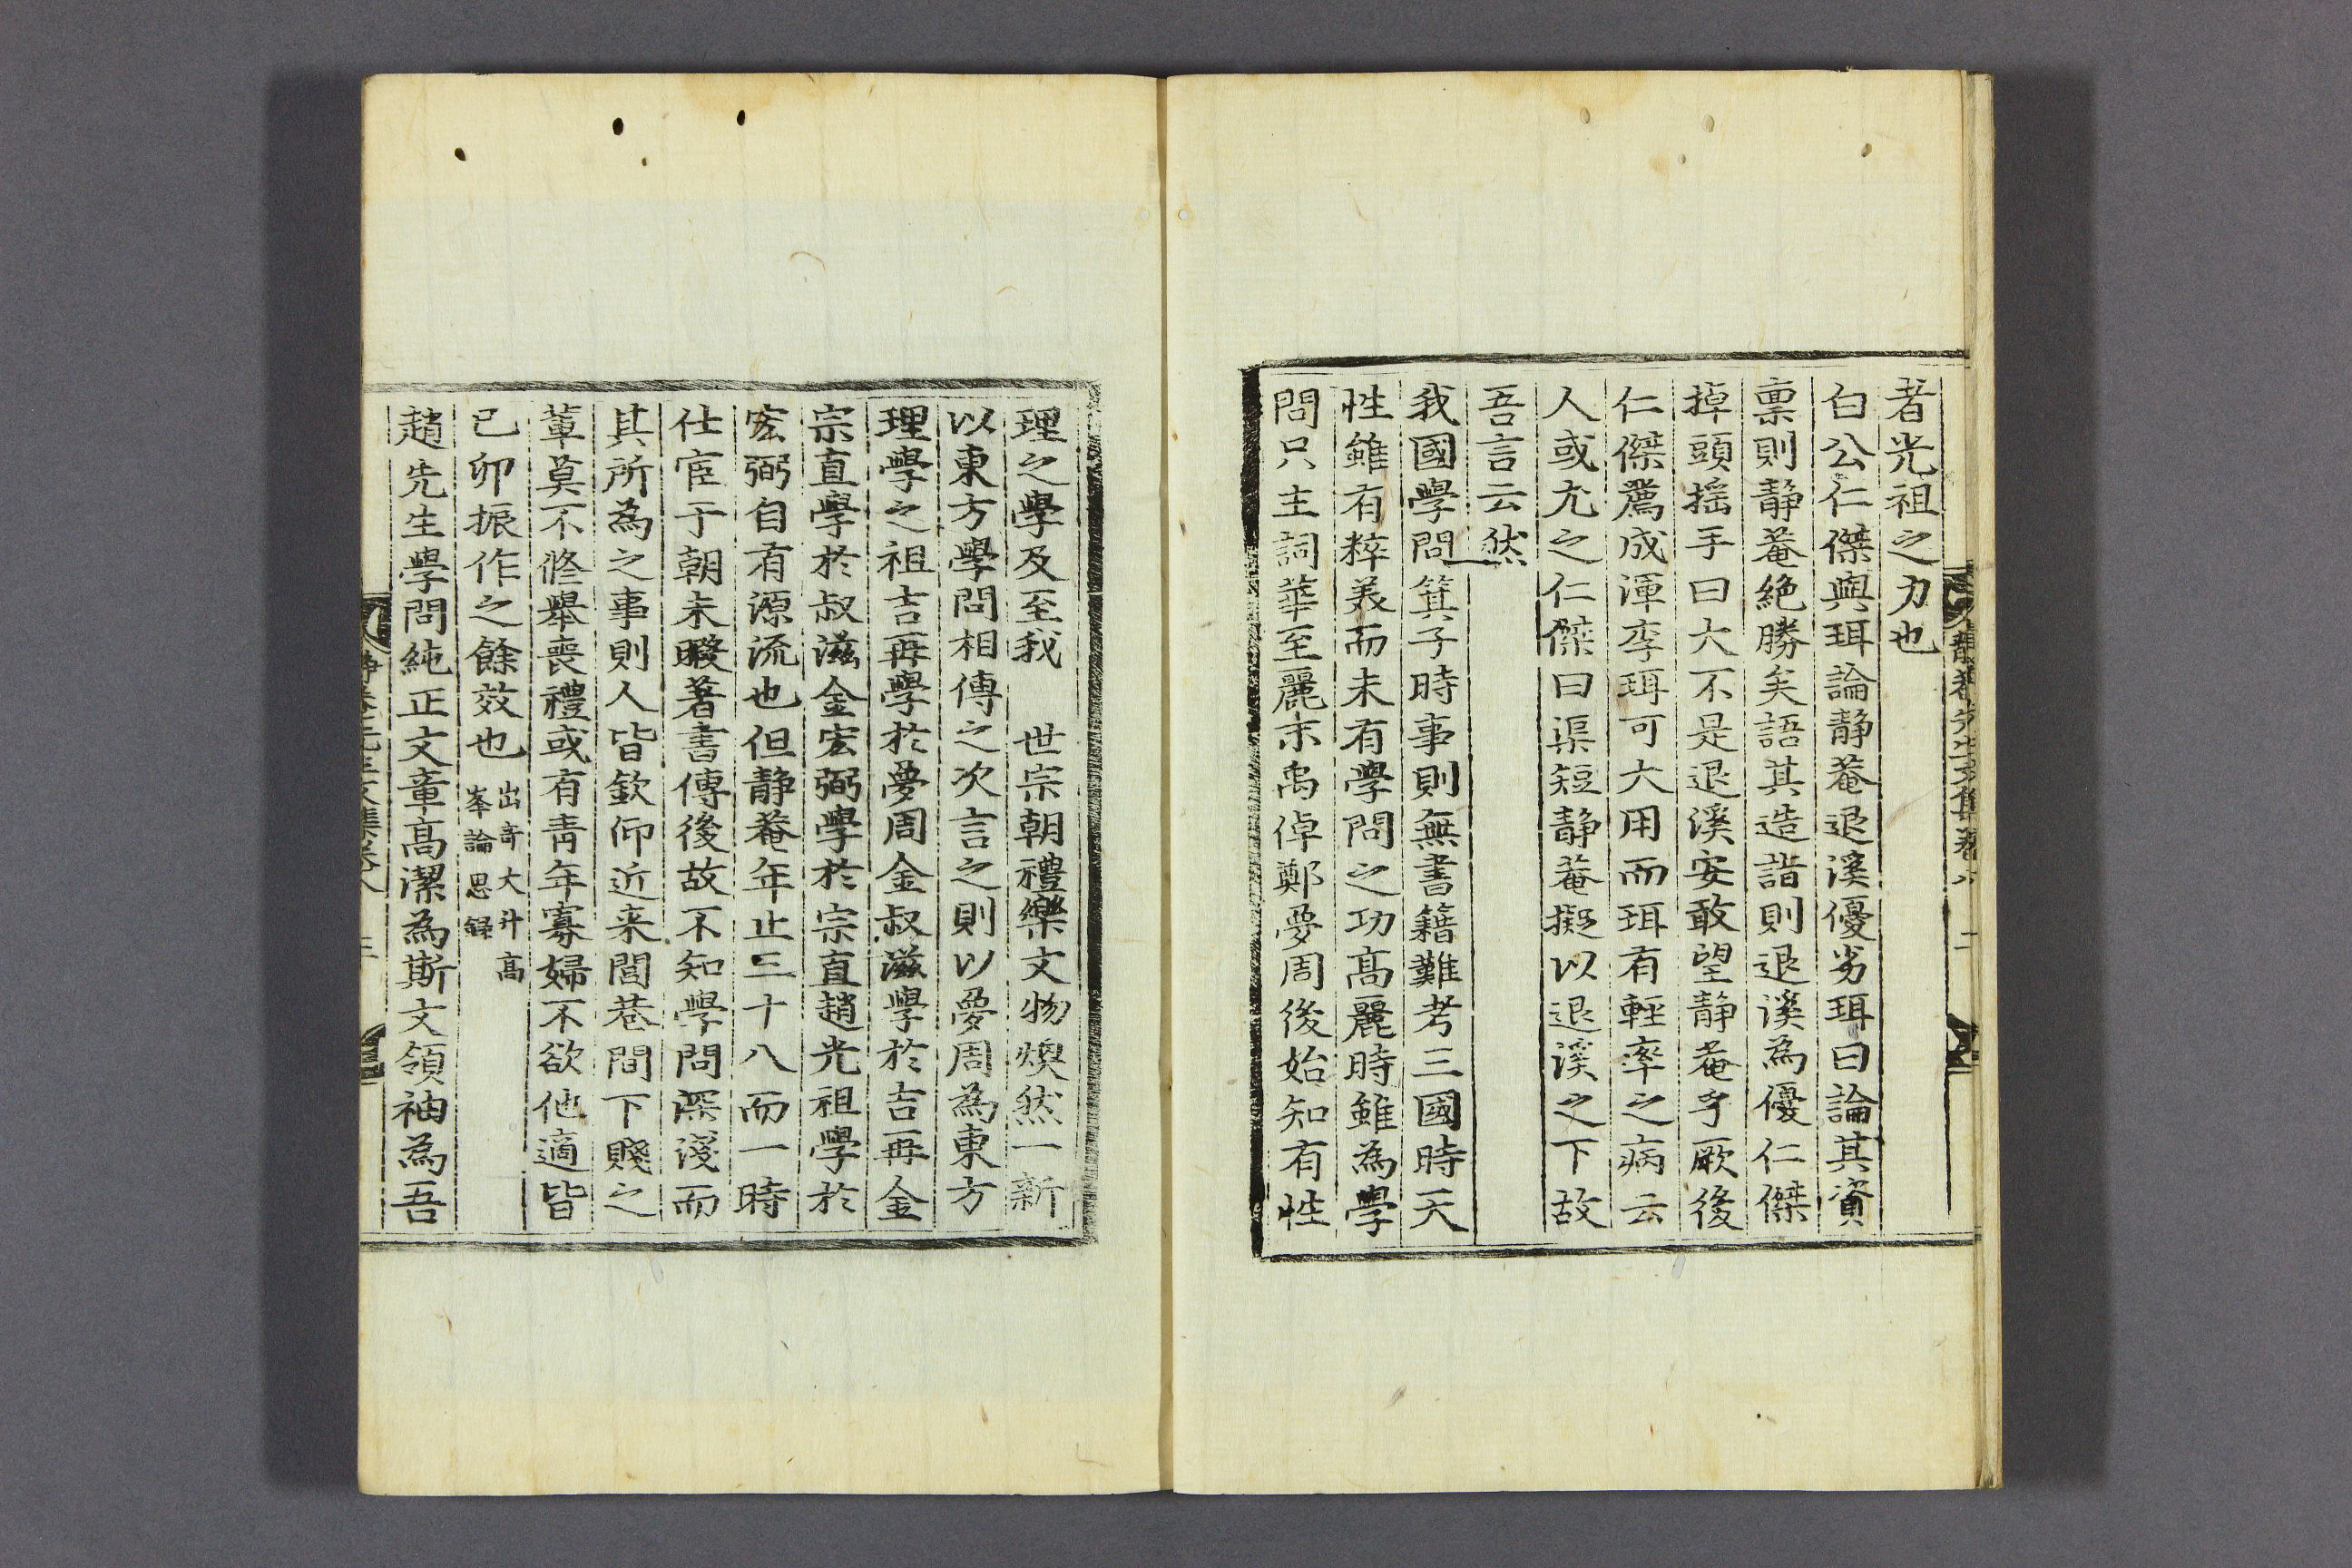 者光祖之力也
白公仁傑與珥論靜菴退溪優劣珥曰論其資
禀則靜菴絶勝矣語其造詣則退溪為優仁傑
掉頭搖手曰大不是退溪安敢望靜菴乎厥後
仁傑薦成渾李珥可大用而珥有輕率之病云
人或尤之仁傑曰渠短靜菴擬以退溪之下故
吾言云然
我國學問箕子時事則無書籍難考三國時天
性雖有粹美而未有學問之功高麗時雖為學
問只主詞華至麗末禹倬鄭夢周後始知有性
理之學及至我 世宗朝禮樂文物煥然一新
以東方學問相傳之次言之則以夢周為東方
理學之祖吉再學於夢周金叔滋學於吉再金
宗直學於叔滋金宏弼學於宗直趙光祖學於
宏弼自有源流也但靜菴年止三十八而一時
仕宦于朝未暇著書傳後故不知學問深淺而
其所為之事則人皆欽仰近来閭巷間下賤之
輩莫不修擧喪禮或有靑年寡婦不欲他適皆
已卯振作之餘效也
出奇大升高
峯論思錄
趙先生學問純正文章高潔為斯文領袖為吾